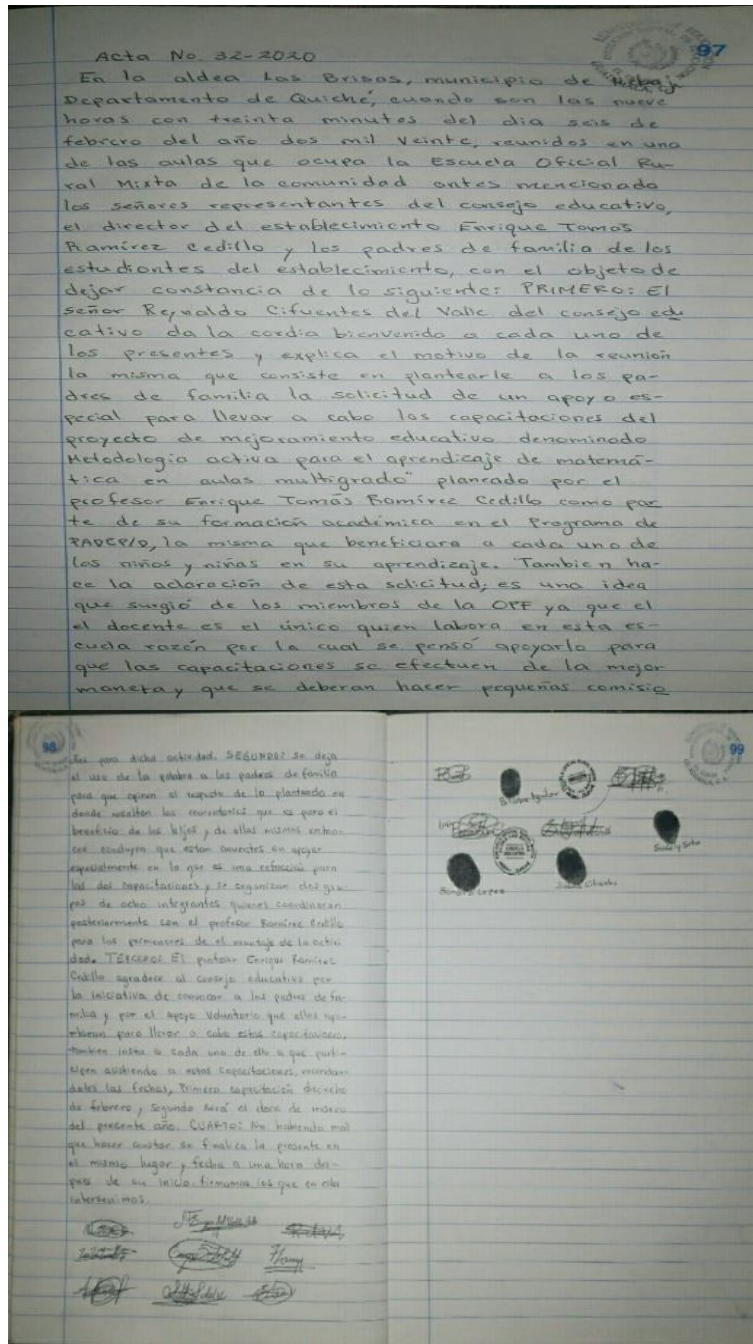 97
Acta No. 32-2020
En la aldea Las Brisas, municipio de Nebaj
Departamento de Quiché, cuando son las nueve
horas con treinta minutos del dia seis de
febrero del año dos mil veinte, reunidos en una
de las aulas que ocupa la Escuela Oficial Ru-
ral Mixta de la comunidad antes mencionado
los señores representantes del consejo educativo,
el director del establecimiento Enrique Tomás
Ramírez Cedillo y los padres de familia de los
estudiantes del establecimiento, con el objeto de
dejar constancia de lo siguiente: PRIMERO: El
señor Reynaldo Cifuentes del Valle del consejo edu
cativo da la cordia bienvenida a cada uno de
los presentes y explica el motivo de la reunión
la misma que consiste en plantearle a los pa-
dres de familia la solicitud de un apoyo es-
pecial para llevar a cabo las capacitaciones del
proyecto de mejoramiento educativo denominado
Metodología activa para el aprendizaje de matemá-
tica en aulas multigrado" planeado por el
profesor Enrique Tomás Ramírez Cedillo como par
te de su formación académica en el Programa de
PADEP/D, la misma que beneficiara a cada uno de
los niños y niñas en su aprendizaje. Tambien ha-
ce la aclaración de esta solicitud; es una idea
que surgió de los miembros de la OPF ya que el
el docente es el único quien labora en esta es-
cuela razón por la cual se pensó apoyarlo para
que las capacitaciones se efectuen de la mejor
manera y que se deberan hacer pequeñas comisio
98
nes para dicha actividad. SEGUNDO: Se deja
el uso de la palabra a los padres de familia
para que opinen al respecto de lo planteado en
donde resaltan los comentarios que es para el
beneficio de los hijos y de ellos mismos enton-
ces concluyen que estan anuentes en apoyar
especialmente en lo que es una refacción para
las dos capacitaciones y se organizan dos gru
pos de ocho integrantes quienes coordinaran
posteriormente con el profesor Ramírez Cedillo
para los pormenores de el montaje de la activi
dad. TERCERO: El profesor Enrique Ramírez
Cedillo agradece al consejo educativo por
la iniciativa de convocar a los padres de fa-
milia y por el apoyo voluntario que ellos
para llevar a cabo estas capacitaciones,
tambien insta a cada uno de ello a que parti-
cipen asistiendo a estas capacitaciones, recordan
doles las fechas, Primera capacitación dieciocho
de febrero y segunda será el doce de marzo
del presente año. CUARTO: No habiendo más
que hacer constar se finaliza la presente en
el mismo lugar y fecha a una hora des-
pues de su inicio. firmamos los que en ella
intervenimos.
99
Sandra Lopez